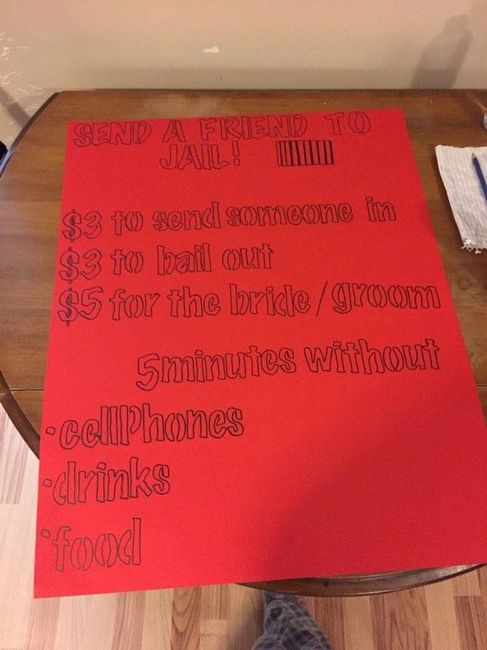 SEND A FRIEND TO
JAIL!
$3 to send someone in
$3 to bail out
$5 for the bride/groom
5minutes without
·cellPhones
·drinks
·food